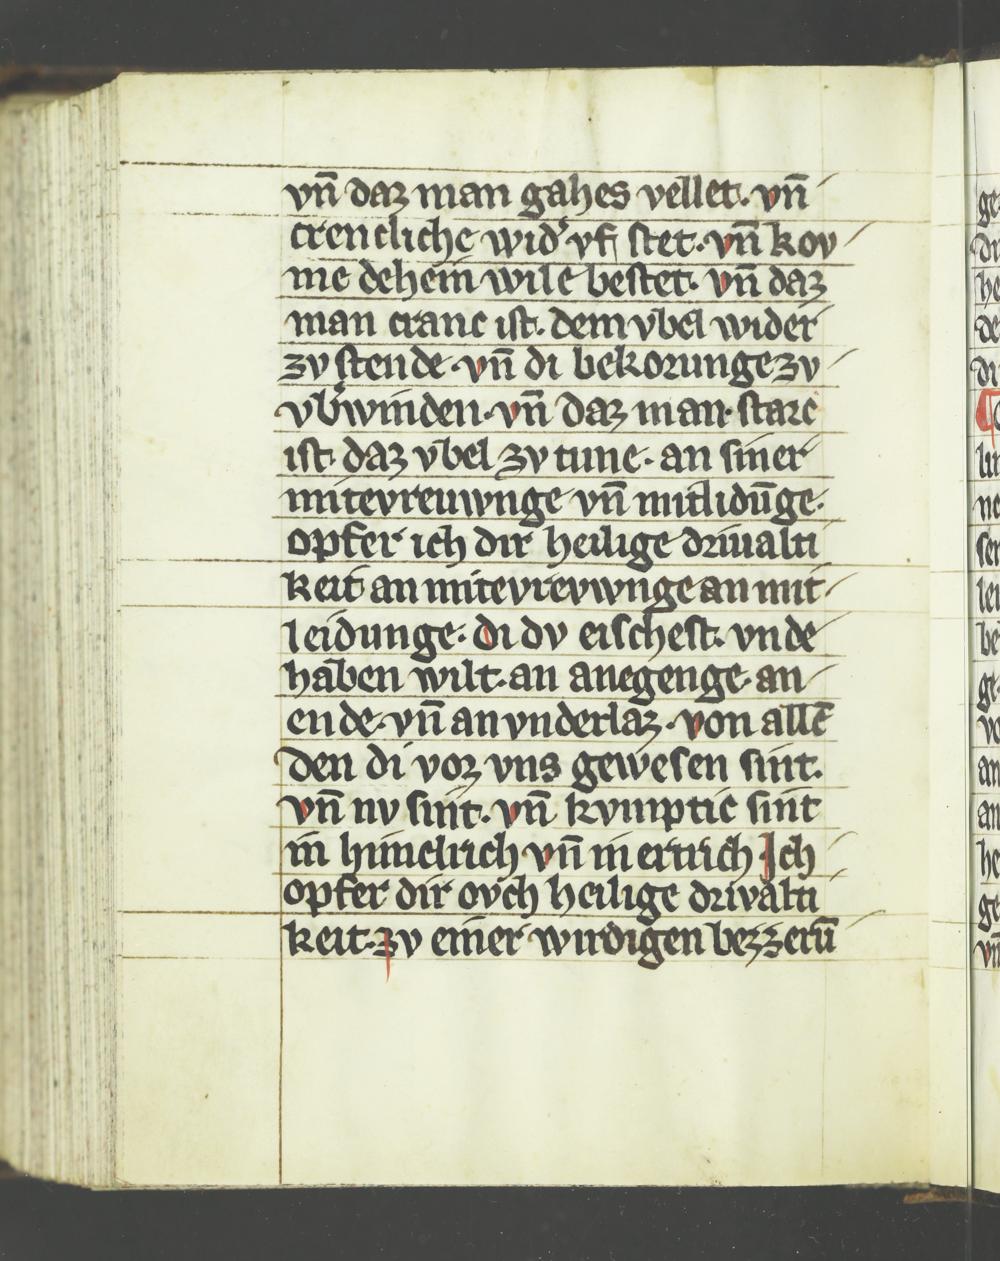 vn̄ daz man gahes vellet. vn̄
crencliche wid͛ vf stet. vn̄ kov
me dehein wile bestet. vn̄ daz
man cranc ist. dem vbel wider
zv stende. vn̄ di bekorunge zv
vb͛winden. vn̄ daz man. starc
ist. daz vbel zv tune. an siner
mitevreuwnge vn̄ mitlidūge.
opfer ich dir heilige driualti
keit an mitevrevwnge an mit
leidunge. di dv eischest. vnde
haben wilt. an anegenge. an
ende. vn̄ an vnderlaz. von allē
den di vor vns gewesen sint.
vn̄ nv sint. vn̄ kvmptic sint
in himelrich vn̄ in ertrich Ich
opfer dir ovch heilige drivalti
keit. zv einer wirdigen bezzerū